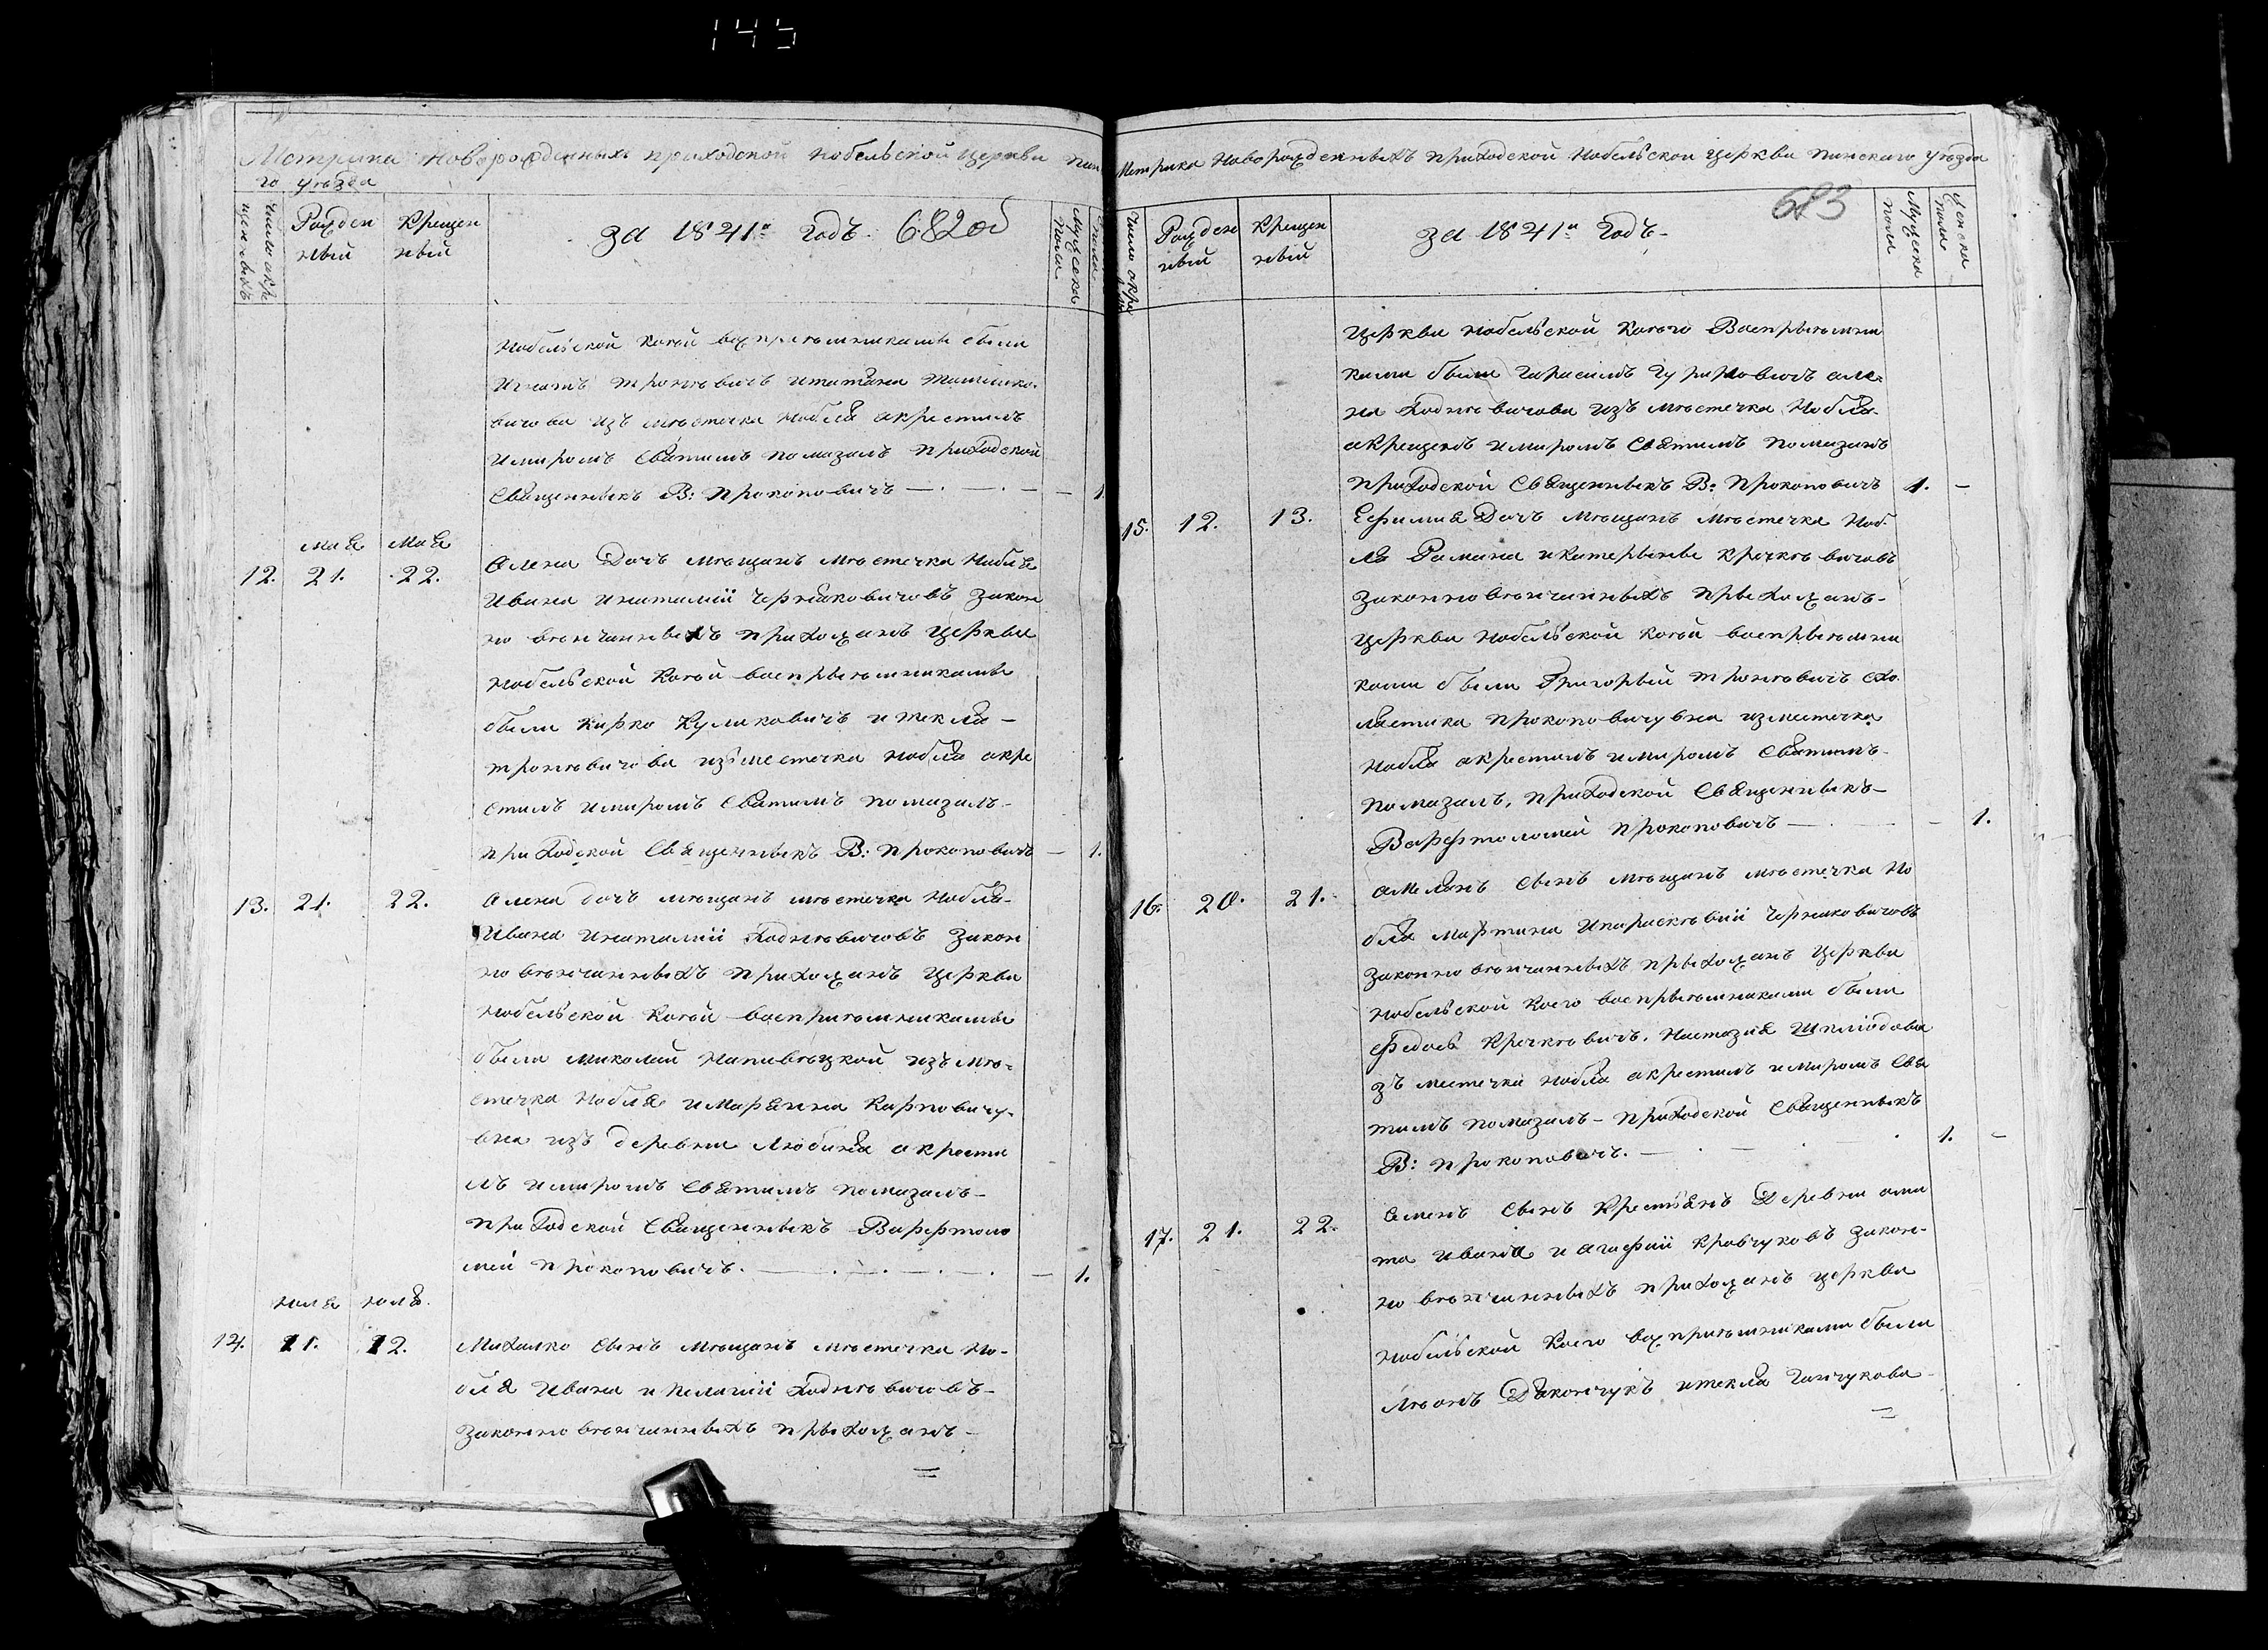 145
Метрика Новорожденныхъ приходской Нобельской Церкви Пин
го уѣзда
число окре
щенныхъ
Рожден
ный
Крещен
ный
за 1841й годъ. 682 об
Мужеска
пола
пола
Нобельской коей воспріемниками были
Игнатъ Тронѣвичъ и Татіана
вичова изъ мѣстечка Нобля а крестилъ
и миромъ Святимъ помазалъ приходской
Священныкъ В: Прокоповичъ — . — . — — 1.
Мая Мая
12. 21. 22. Олена Дочъ мѣщанъ мѣстечка Нобля
Ивана и Наталіи Чернаковичовъ закон
но вѣнчанныхъ прихожанъ Церкви
Нобельской коей воспрыемниками
были Кирко Куликовичъ и Текля –
Тронѣвичова изъ местечка Нобля а кре
стилъ и миромъ Святимъ помазалъ –
приходской Священныкъ В: Прокоповичъ — 1.
13. 21. 22. Олена дочъ мѣщанъ мѣстечка Нобля
Ивана и Наталіи Ходнѣвичовъ закон
но вѣнчанныхъ прихожанъ Церкви
Нобельской коей воспріемниками
были Миколай изъ мѣ-
стечка Нобля и Маряна Карповичу-
вна изъ деревни Любиня а крести
лъ и миромъ Святимъ помазалъ –
приходской Священныкъ Варфтоло
мей Прокоповичъ. — . — . — . — 1.
Июля Июля.
14. 11. 12. Михалко Сынъ мѣщанъ мѣстечка Но-
бля Ивана и Пелагіи Ходнѣвичовъ –
законно вѣнчанныхъ прыхожанъ –
=
Метрика Новорожденныхъ приходской Нобельской церкви Пинскаго уѣзда
683
число окре
Рожден
ный
Крещен
ный
за 1841й годъ –
Мужеска
пола
Женска
пола
Церкви Нобельской коего Воспрыемни
ками были Гарасимъ Гуриновичъ Оле-
на Ходнѣвичова изъ мѣстечка Нобля
а крещенъ и миромъ Святимъ помазанъ
приходской Священныкъ В: Прокоповичъ 1. –
15. 12. 13. Ефимия Дочъ мѣщанъ мѣстечка Ноб-
ля Рамана и Катерыны Кречкѣвичовъ
законно вѣнчанныхъ прыхожанъ –
церкви Нобельской коей воспрыемни
ками были Григорый Тронѣвичъ Схо
лястика Прокоповичувна из местечка
Нобля а крестилъ и миромъ Святимъ
помазалъ, приходской Священныкъ –
Варфтоломей Прокоповичъ — — 1.
16. 20. 21. Омелянъ Сынъ мѣщанъ мѣстечка Но
бля Мартина и Параскѣвии Чернаковичовъ
законно вѣнчанныхъ прыхожанъ Церкви
Нобельской коего воспрыемниками были
Федось Кречкѣвичъ. Настазия Шклюдова
зъ местечка Нобля а крестилъ и миромъ Свя
тимъ помазалъ – приходской Священныкъ
В: Прокоповичъ. — . — . — . 1. –
17. 21. 22. Семенъ Сынъ Крестьянъ Деревни оми
та Ивана и Агафии Кравчуковъ закон-
но вѣнчанныхъ прихожанъ церкви
Нобельской коего воспріемниками были
Лѣонъ Дякончукъ и Текля Ганчукова –
=